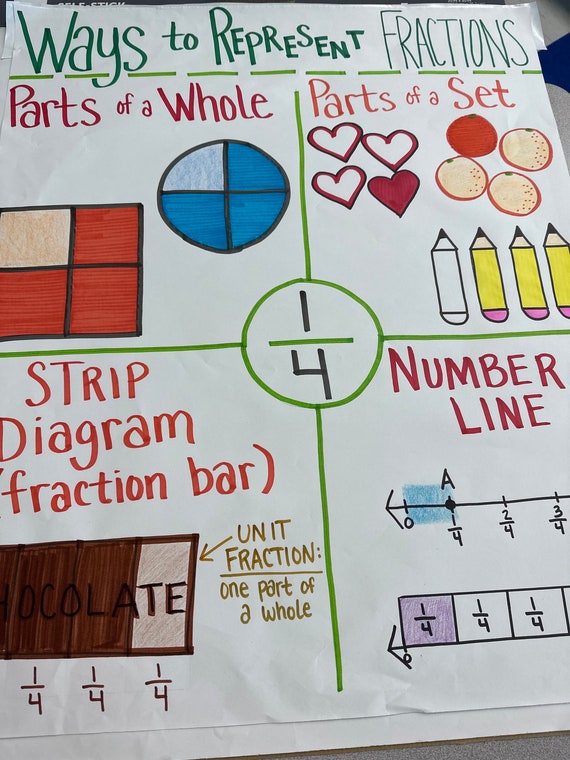 SELF-STICK
WAYS to REPRESENT FRACTIONS
Parts of a Whole
Parts of a Set
1/4
STRIP
Diagram
(fraction bar)
HOCOLATE
1/4 1/4 1/4
UNIT
FRACTION:
one part of
a whole
NUMBER
LINE
A
0 1/4 2/4 3/4
1/4 1/4 1/4
0